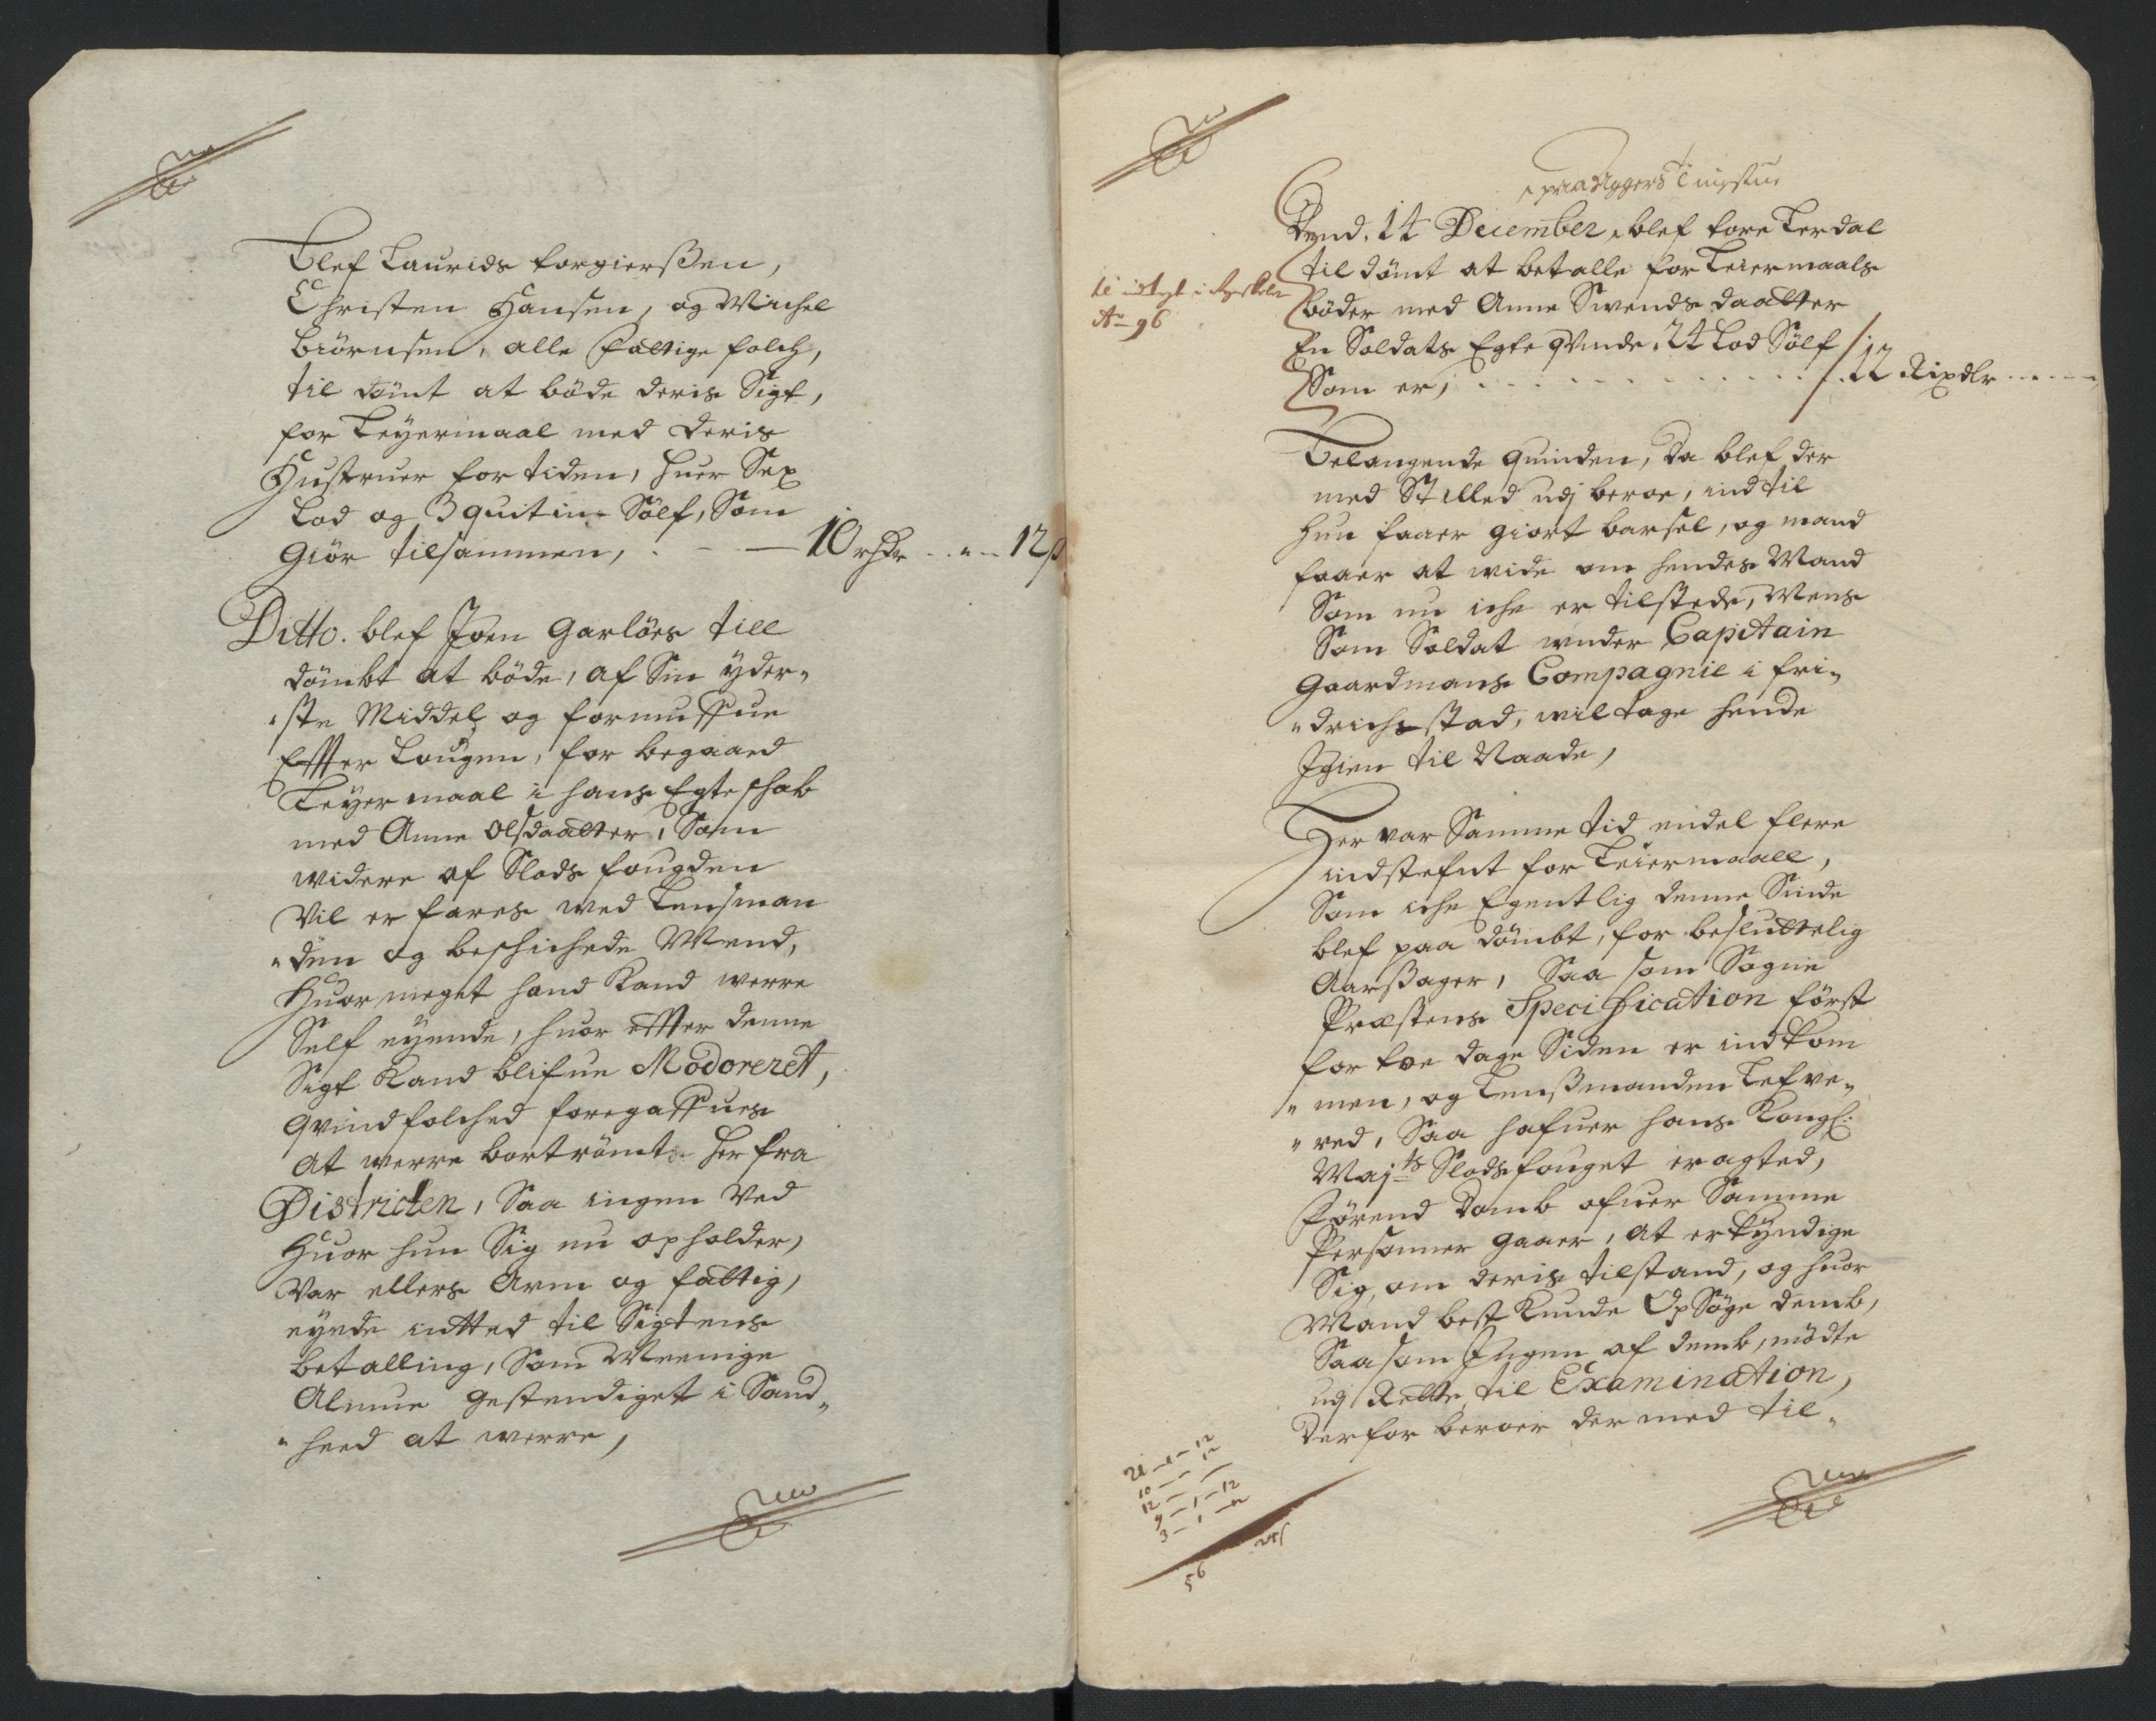 Blef Laurids Torgierßen,
Christen Hansen, og Michel
Biörnsen, alle fattige folch,
til dömt at böde deris Sigt,
for Leyermaal med deris
Hustruer for tiden, huer Sex
Lod og 3 quitin Sölf, Som
Giör tilsammen, . - — 10 rhdr - . - 12 ß
Ditto. blef Joen Garlöes till
dömbt at böde, af Sin yder„
„ste Middel og formuffue
Effter Lougen, for begaaed
Leyermaal i hans Egteschab
med Anne Olsdaatter, Som
widere af Slods fougden
Vil erfares med Lensman
„den og beschichede Mend,
Huor meget hand Kand werre
Self eyende, huor effter denne
Sigt Kand blifue Modoreret,
Qvindfolched foregaffues
At werre bortrömt her fra
Districten, Saa ingen Ved
Huor hun Sig nu opholder,
War ellers Arm og fattig,
eyede intted til Sigtens
betalling, Som Meenige
Almue gestendiget i Sand„
„heed at werre,
paa Aggers Tingstue
Dend. 14 December, blef Tore Lerdal
til dömt at betalle for Leiermaals
böder med Anne Swends daatter
En Soldats Egte qvinde, 24 Lod Sölf
Som er, . . . . . . 12 Rixdlr - - - -
A° 96
Belangende quinden, da blef der
med Stilled udj beroe, indtil
hun faaer giort barsel, og mand
faaer at wide om hendes Mand
Som nu iche er tilstede, Mens
Som Soldat under Capitain
Gaardmans Compagnie i fri„
„drichsstad, wil tage hende
Igien til Naade,
Der var Samme tid endel flere
indstefnt for Leiermaall,
Som iche Egentlig denne Sinde
blef paa dömbt, for besluttelig
Aarßager, Saa som Sogne
Præstens Specification först
for toe dage Siden er indkom
„men, og Lenßmanden Lefve„
„red, Saa hafuer hans Kongl:
Majts Slodsfouget eragted,
Förend Domb ofuer Samme
Personner gaaer, at erkyndige
Sig, om deris tilstand, og huor
Mand best Kunde OpSöge demb,
Saasom Ingen af demb, mödte
udj Rette, til Examination,
Derfor beroer der med til„
21 — 1 — 12
10 — — 12
12 — —
9 — 1 — 12
3 — 1 —
56